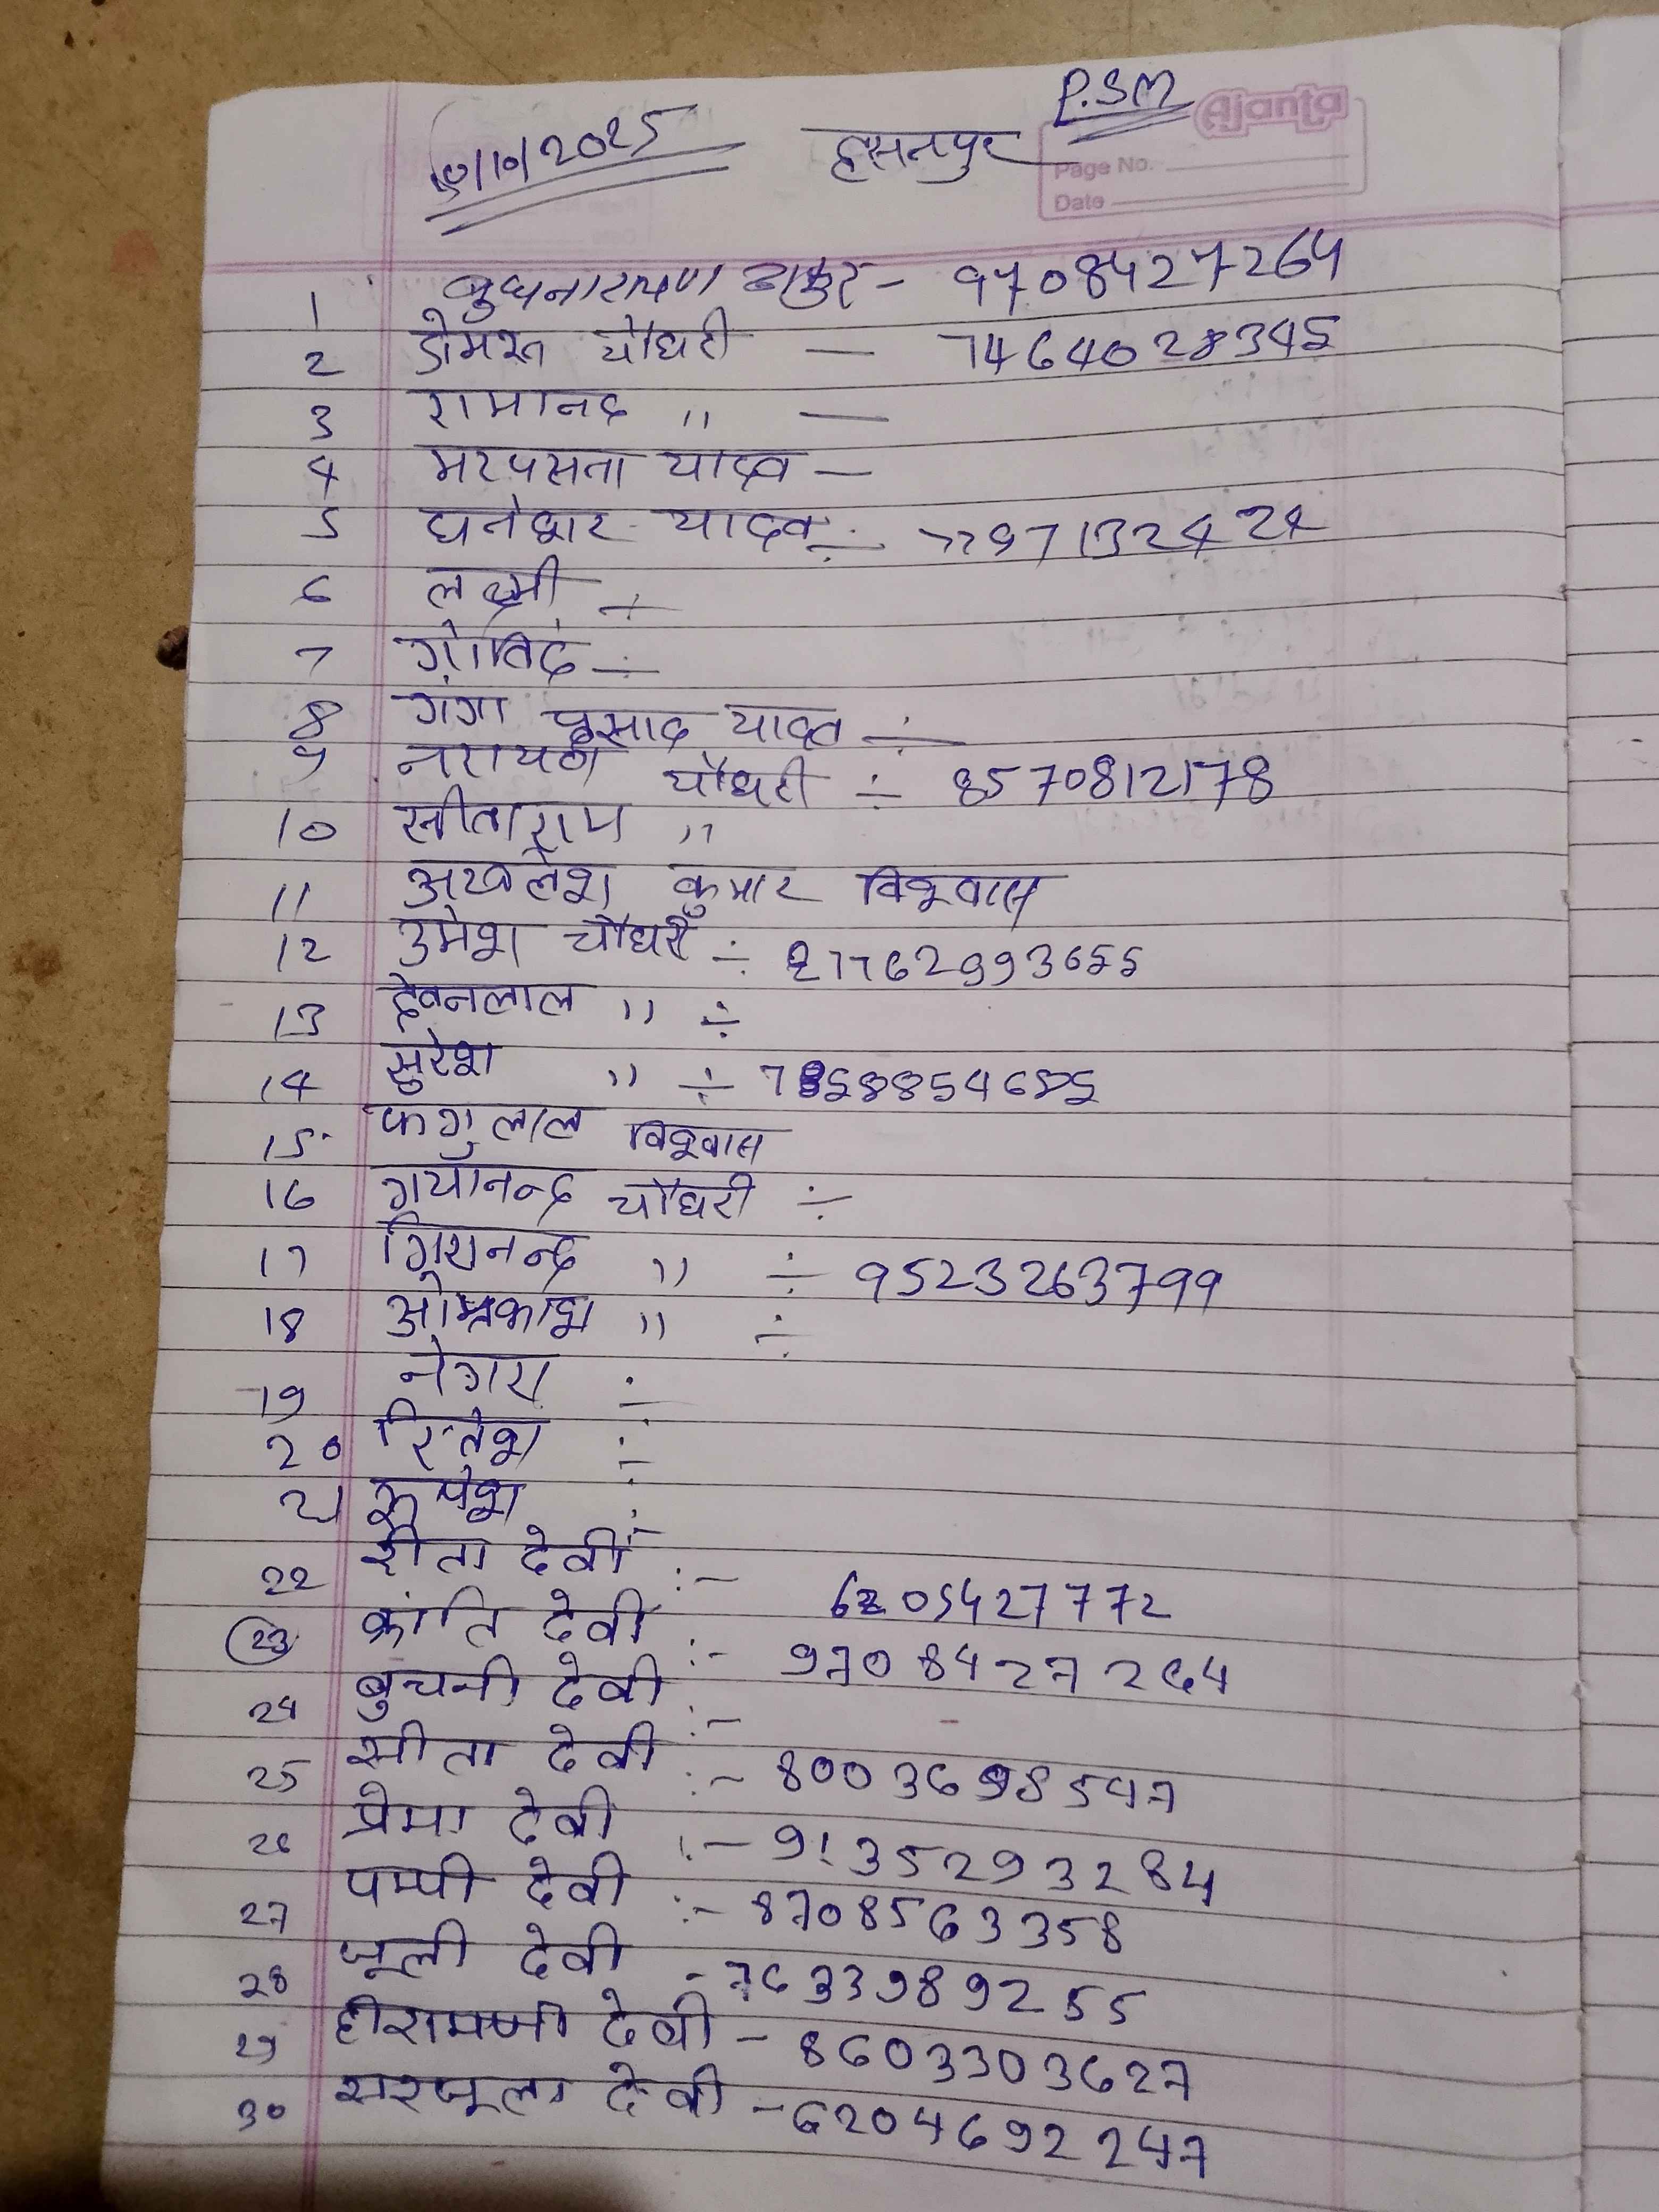 P.SM
Ajanta
/10/2025 हसनपुर
Page No.
Date
1 बुधनारायण ठाकुर - 9708427264
2 डोमन चौधरी — 7464028345
3 रामानन्द " —
4 यादव —
5 घनेश्वर यादव ÷ 7797132424
6 लक्ष्मी ÷
7 गोविंद ÷
8 गंगा प्रसाद यादव ÷
9 नरायण चौधरी ÷ 8570812178
10 सीताराम "
11 अखलेश कुमार विश्वास
12 उमेश चौधरी ÷ 7762993655
13 देवनलाल " ÷
14 सुरेश " ÷
15 फगुलाल विश्वास
16 गयानन्द चौधरी ÷
17 " ÷ 9523263799
18 ओमप्रकाश " ÷
19 ÷
20 रितेश ÷
21 रूपेश :-
22 रीता देवी :- 6205427772
23 क्रांति देवी :- 9708427264
24 बुचनी देवी :-
25 सीता देवी :- 8003698547
26 प्रेमा देवी :- 9135293284
27 पम्पी देवी :- 8708563358
28 जूली देवी - 7633989255
29 देवी - 8603303627
30 देवी - 6204692247